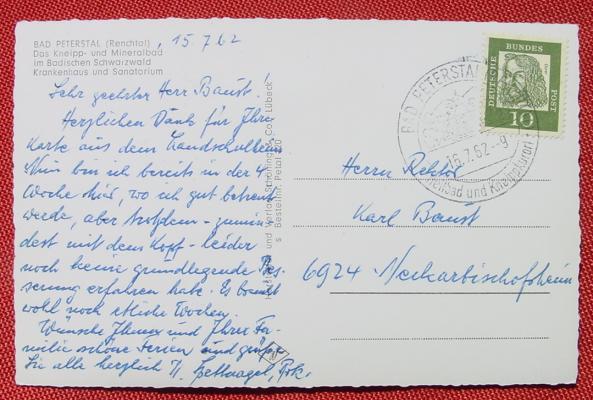 BAD PETERSTAL (Renchtal)
Das Kneipp- und Mineralbad
im Badischen Schwarzwald
Krankenhaus und Sanatorium
15.7.62
Sehr geehrter Herr Baust!
Herzlichen Dank für Ihre
Karte aus dem Landschulheim
Nun bin ich bereits in der 4.
Woche hier, wo ich gut betreut
werde, aber trotzdem - zumin-
dest mit dem Kopf - leider
noch keine grundlegende Bes-
serung erfahren habe. Es braucht
wohl noch etliche Wochen.
Wünsche Ihnen und Ihrer Fa-
milie schöne Ferien und grüße
Sie alle herzlich
und Verlag Schöning & Co., Lübeck
Bestellnr. Petal
BAD PETERSTAL
16.7.62.-9
und Kneippkurort
DEUTSCHE BUNDESPOST
10
Herrn Rektor
Karl Baust
6924 Neckarbischofsheim